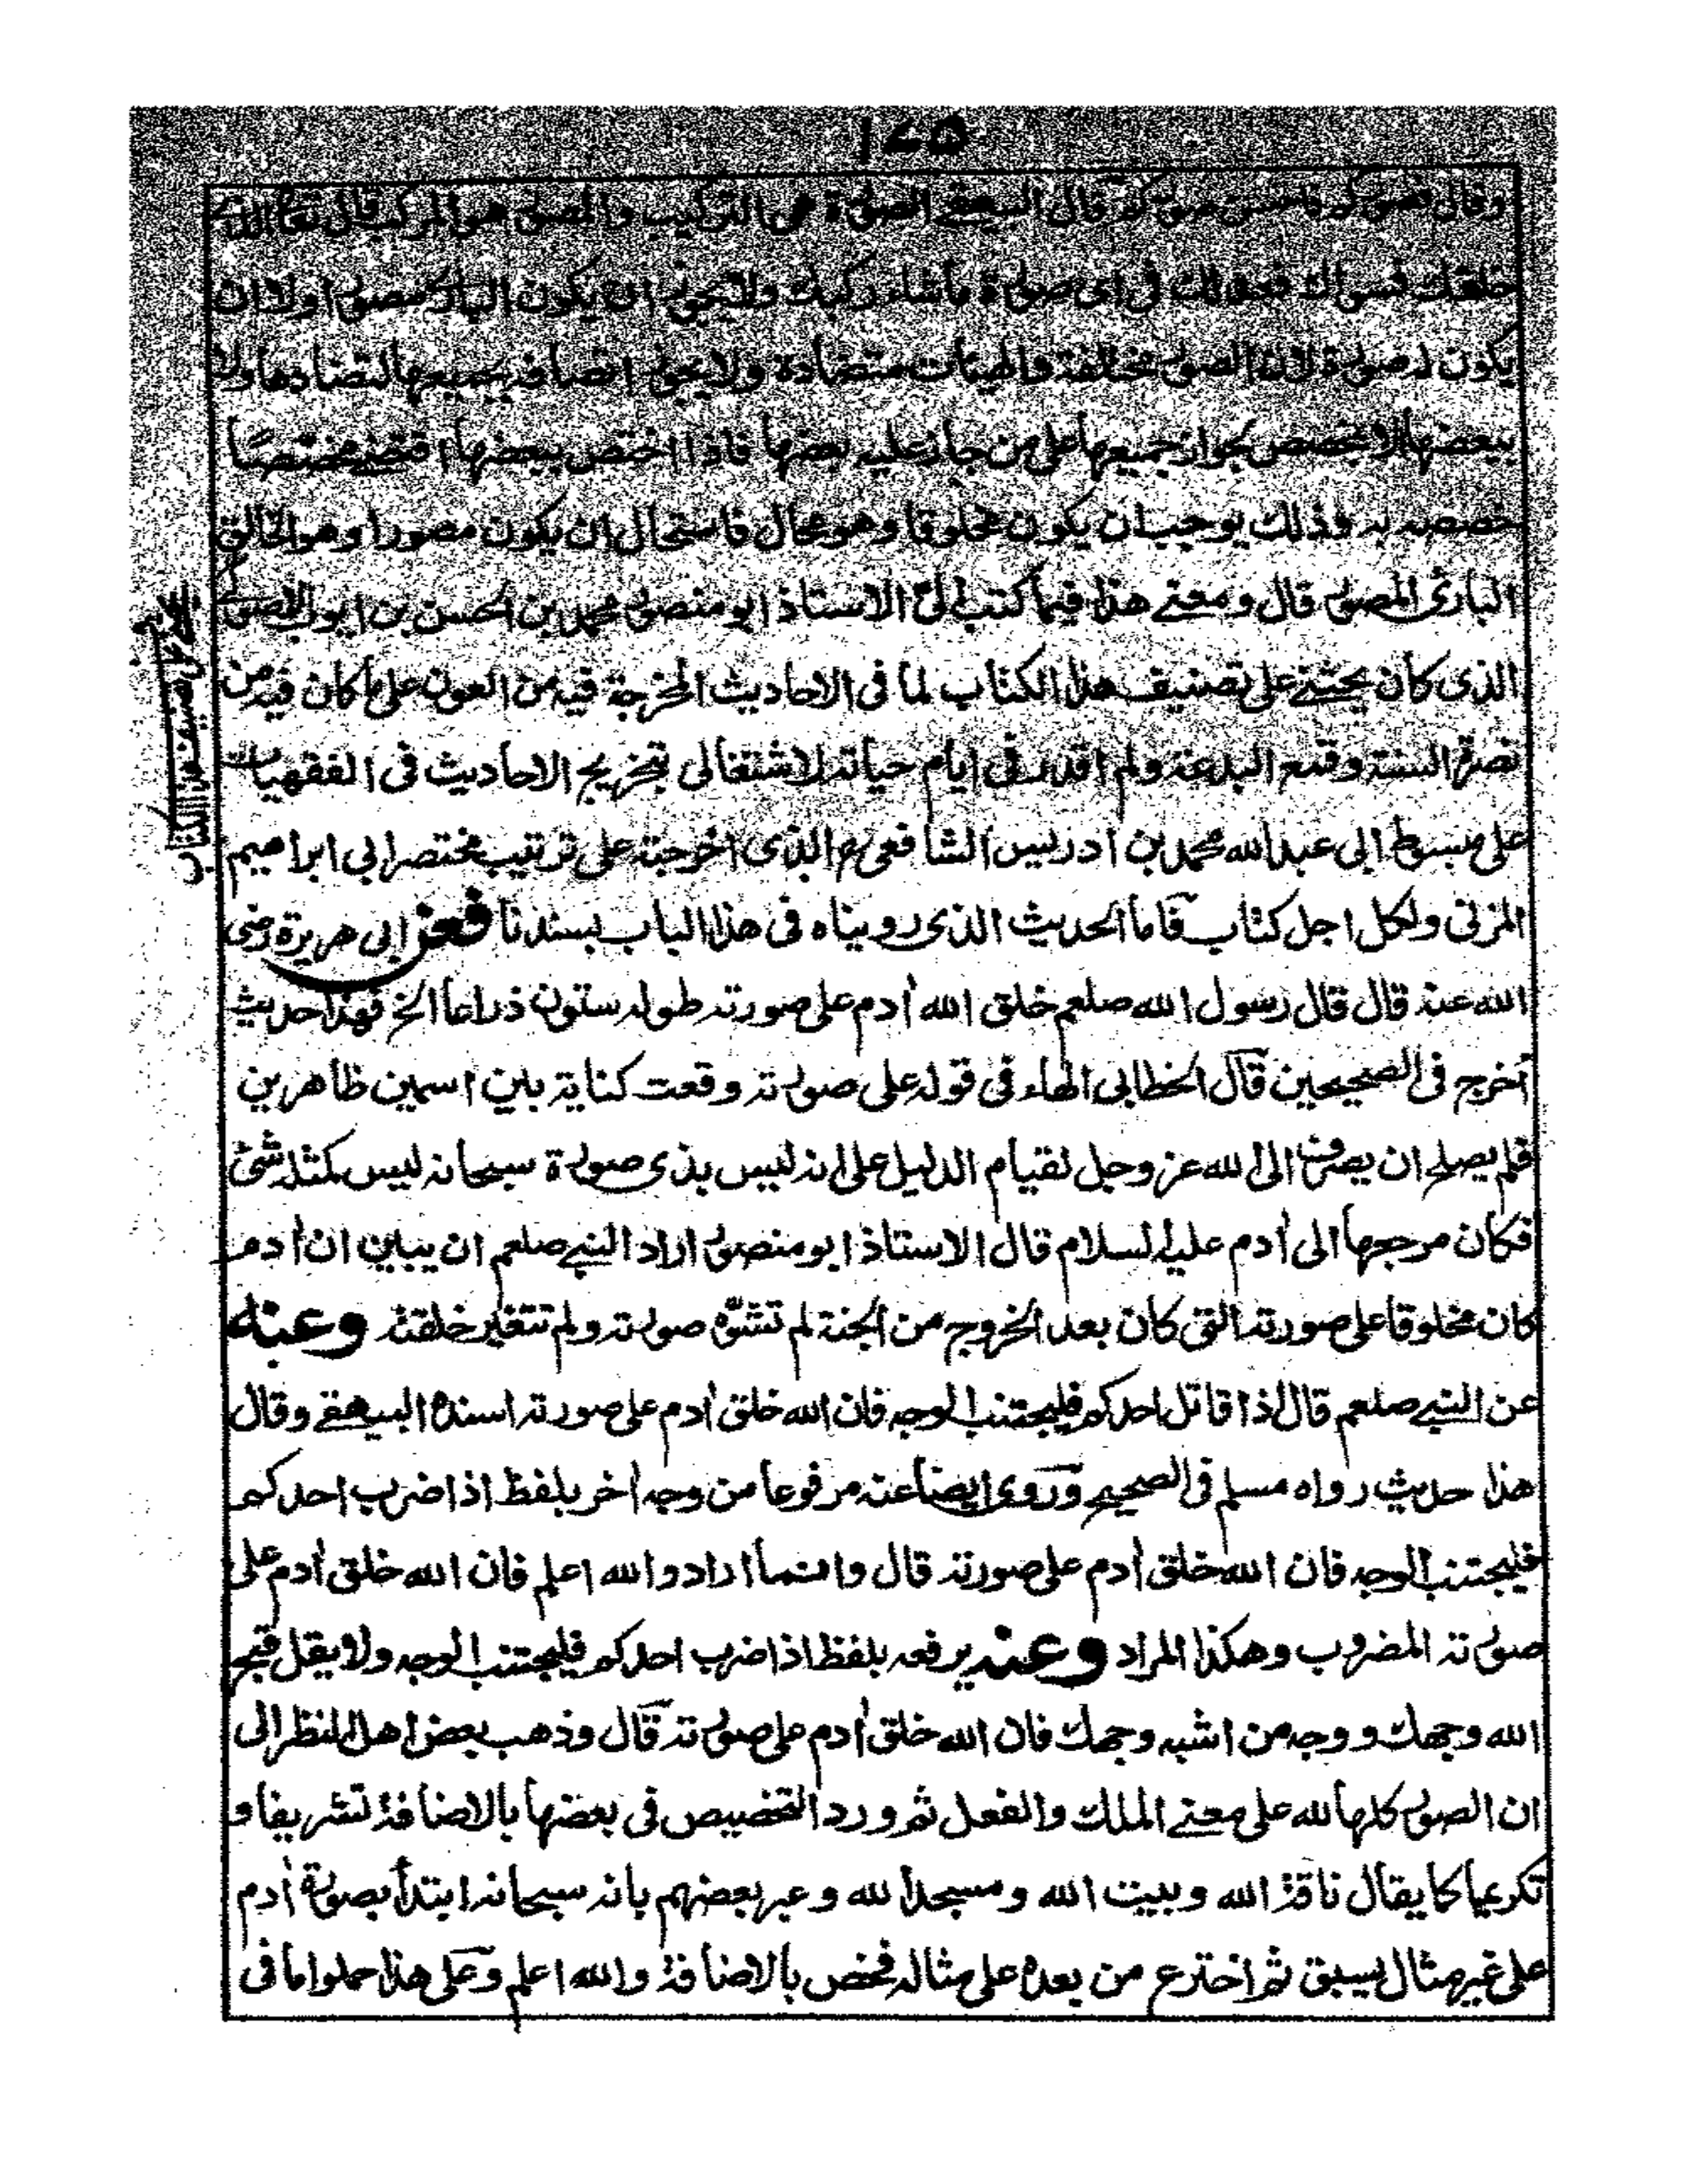 ١٢٥
وقال فصوركم فاحسن صوركم قال البيهقي الصورة هى التركيب والمصور هو المركب قال تعالى الذى
خلقك فسواك فعدلك فى اى صورة ماشاء ركبك ولا يجوز ان يكون البارى مصورا ولا ان
يكون له صورة لان الصور مختلفة والهيئات متضادة ولا يجوز اتصافه بجميعها لتضادها ولا
ببعضها الا بمخصص لجواز جميعها على من جاز عليه بعضها فاذا اختص ببعضها اقتضى مخصصًا
خصصه به وذلك يوجب ان يكون مخلوقا وهو محال فاستحال ان يكون مصورا وهو الخالق
البارئ المصور قال ومعنى هذا فيما كتب الىّ الاستاذ ابو منصور محمد بن الحسن بن ابى ايوب الاصولى
الذى كان يحثنى على تصنيف هذا الكتاب لما فى الاحاديث المخرجة فيه من العون على ما كان فيه من
نصرة السنة وقمع البدعة ولم اقدر فى ايام حياته لاشتغالى بتخريج الاحاديث فى الفقهيات
على مبسوط ابى عبدالله محمد بن ادريس الشافعى رح الذى اخرجته على ترتيب مختصر ابى ابراهيم
المزنى ولكل اجل كتاب فاما الحديث الذى رويناه فى هذا الباب بسندنا فعن ابى هريرة رضى
الله عنه قال قال رسول الله صلعم خلق الله أدم على صورته طوله ستون ذراعا الخ فهذا حديث
أخرج فى الصحيحين قال الخطابى الهاء فى قوله على صورته وقعت كناية بين اسمين ظاهرين
فلم يصلح ان يصرف الى الله عز وجل لقيام الدليل على انه ليس بذى صورة سبحانه ليس كمثله شئ
فكان مرجعها الى أدم عليه السلام قال الاستاذ ابو منصور اراد النبي صلعم ان يبين ان أدم
كان مخلوقا على صورته التى كان بعد الخروج من الجنة لم تشوّه صورته ولم تتغير خلقته وعنه
عن النبي صلعم قال اذا قاتل احدكم فليجتنب الوجه فان الله خلق أدم على صورته اسنده البيهقي وقال
هذا حديث رواه مسلم فى الصحيح وروى ايضا عنه مرفوعا من وجه أخر بلفظ اذا ضرب احدكم
فليجتنب الوجه فان الله خلق أدم على صورته قال وانما اراد والله اعلم فان الله خلق أدم على
صورته المضروب وهكذا المراد وعنه يرفعه بلفظ اذا ضرب احدكم فليجتنب الوجه ولا يقل قبح
الله وجهك ووجه من اشبه وجهك فان الله خلق أدم على صورته قال وذهب بعض اهل النظر الى
ان الصور كلها لله على معنى الملك والفعل ثم ورد التخصيص فى بعضها بالاضافة تشريفا و
تكريما كما يقال ناقة الله وبيت الله ومسجد الله وعبر بعضهم بانه سبحانه ابتدأ بصورة أدم
على غير مثال يسبق ثم اخترع من بعده على مثاله فخص بالاضافة والله اعلم وعلى هذا حملوا ما فى